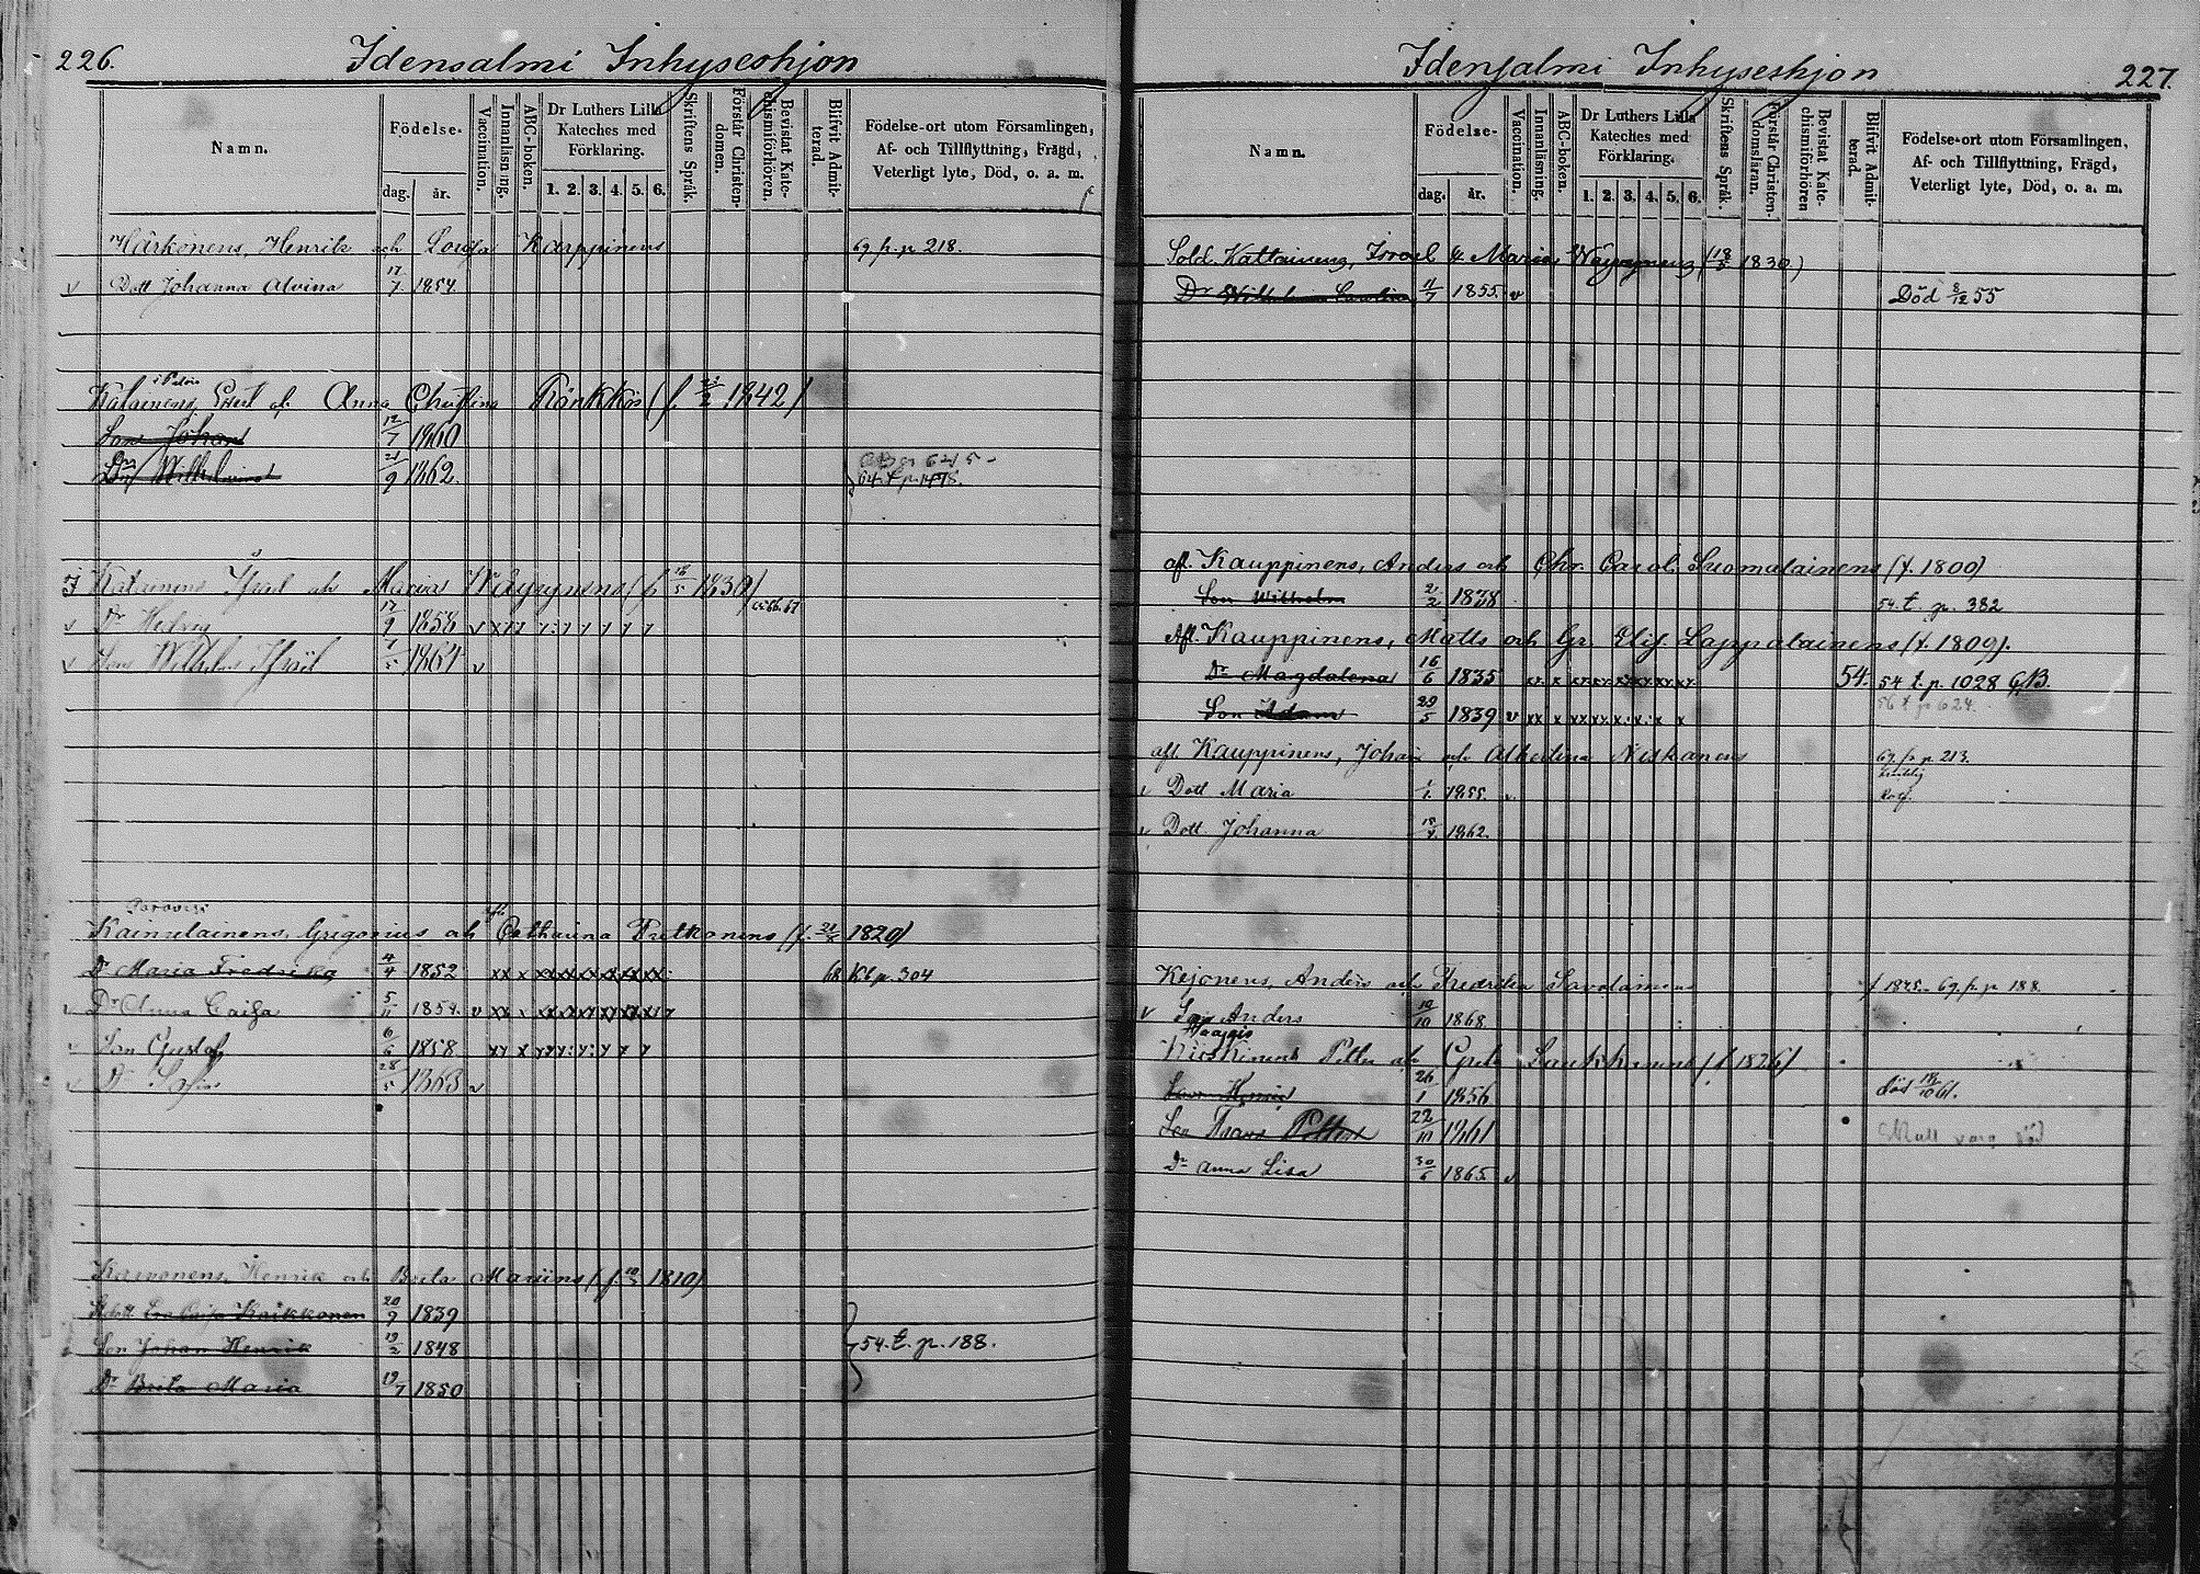 226. Idensalmi Inhyseshjon
Namn.
Födelse-
dag. år.
Vaccination.
Innanläsning.
ABC-boken.
Dr Luthers Lilla
Kateches med
Förklaring.
1. 2. 3. 4. 5. 6.
Skriftens Språk.
Förstår Christen-
domen.
Bevistat Kate-
chismiförhören.
Blifvit Admit-
terad.
Födelse-ort utom Församlingen,
Af- och Tillflyttning, Frägd,
Veterligt lyte, Död, o. a. m.
Härkönens, Henrik och Lovisa Karppinens 69. fr. p 218.
v Dott Johanna Alvina 17/7 1854.
Katainens, och Anna Christina Rönkkös (f. 1842)
Son Johan 12/7 1860
Dr Wilhelmina 21/9 1862.
Katainens Israel och Maria Wäyrynens (f. 18/5 1830)
v Dr Hedvig 17/9 1858 v
v Son Wilhelm 7/5 1864 v
Kainulainens, Grigorius och Catharina Pitkänens (f. 1820)
Dr Maria Fredrika 4/4 1852 xx x xx xx xx xx xx xx 68 Kl p. 304
v Dr Anna Caisa 5/11 1854. v xx x
v Son Gustaf 6/6 1858
v Dr Sofia 28/5 1863 v
Karvonens, Henrik och Brita Mariins (f. 1810)
Kaikkonen 20/9 1839
Son Johan Henrik 19/2 1848 54. t. p. 188.
Dr Brita Maria 19/7 1850
Idensalmi Inhyseshjon 227.
Namn.
Födelse-
dag. år.
Vaccination.
Innanläsning.
ABC-boken.
Dr Luthers Lilla
Kateches med
Förklaring.
1. 2. 3. 4. 5. 6.
Skriftens Språk.
Förstår Christen-
domsläran.
Bevistat Kate-
chismiförhören
Blifvit Admit-
terad.
Födelse-ort utom Församlingen,
Af- och Tillflyttning, Frägd,
Veterligt lyte, Död, o. a. m.
Sold. Kattainens, Israel & Maria Wäyrynens (18/5 1830)
Dr Wilhelmina Carolina 11/7 1855. v Död 8/12 55
afl. Kauppinens, Anders och Chr. Carol. Suomalainens (f. 1800)
Son Wilhelm 2/2 1838 54. t. p. 382
Afl. Kauppinens, Matts och Gr. Elis. Lappalainens (f. 1809).
Dr Magdalena 16/6 1835 54. 54 t. p. 1028 GB.
Son Adam 29/5 1839 v 56 t p 624.
afl. Kauppinens, Johan och Albertina Niskanens 69. fr p. 213.
v Dott Maria 1/1 1855. v
v Dott. Johanna 1862.
Kejonens, Anders och Fredrika Savolainens 69. fr. p 188.
v Son Anders 10/10 1868.
Petter och Greta Laukkanens (f. 1826)
Son Henric 26/1 1856 död 61.
Son Frans Petter 22/10 1861
Dr Anna Lisa 30/6 1865. v